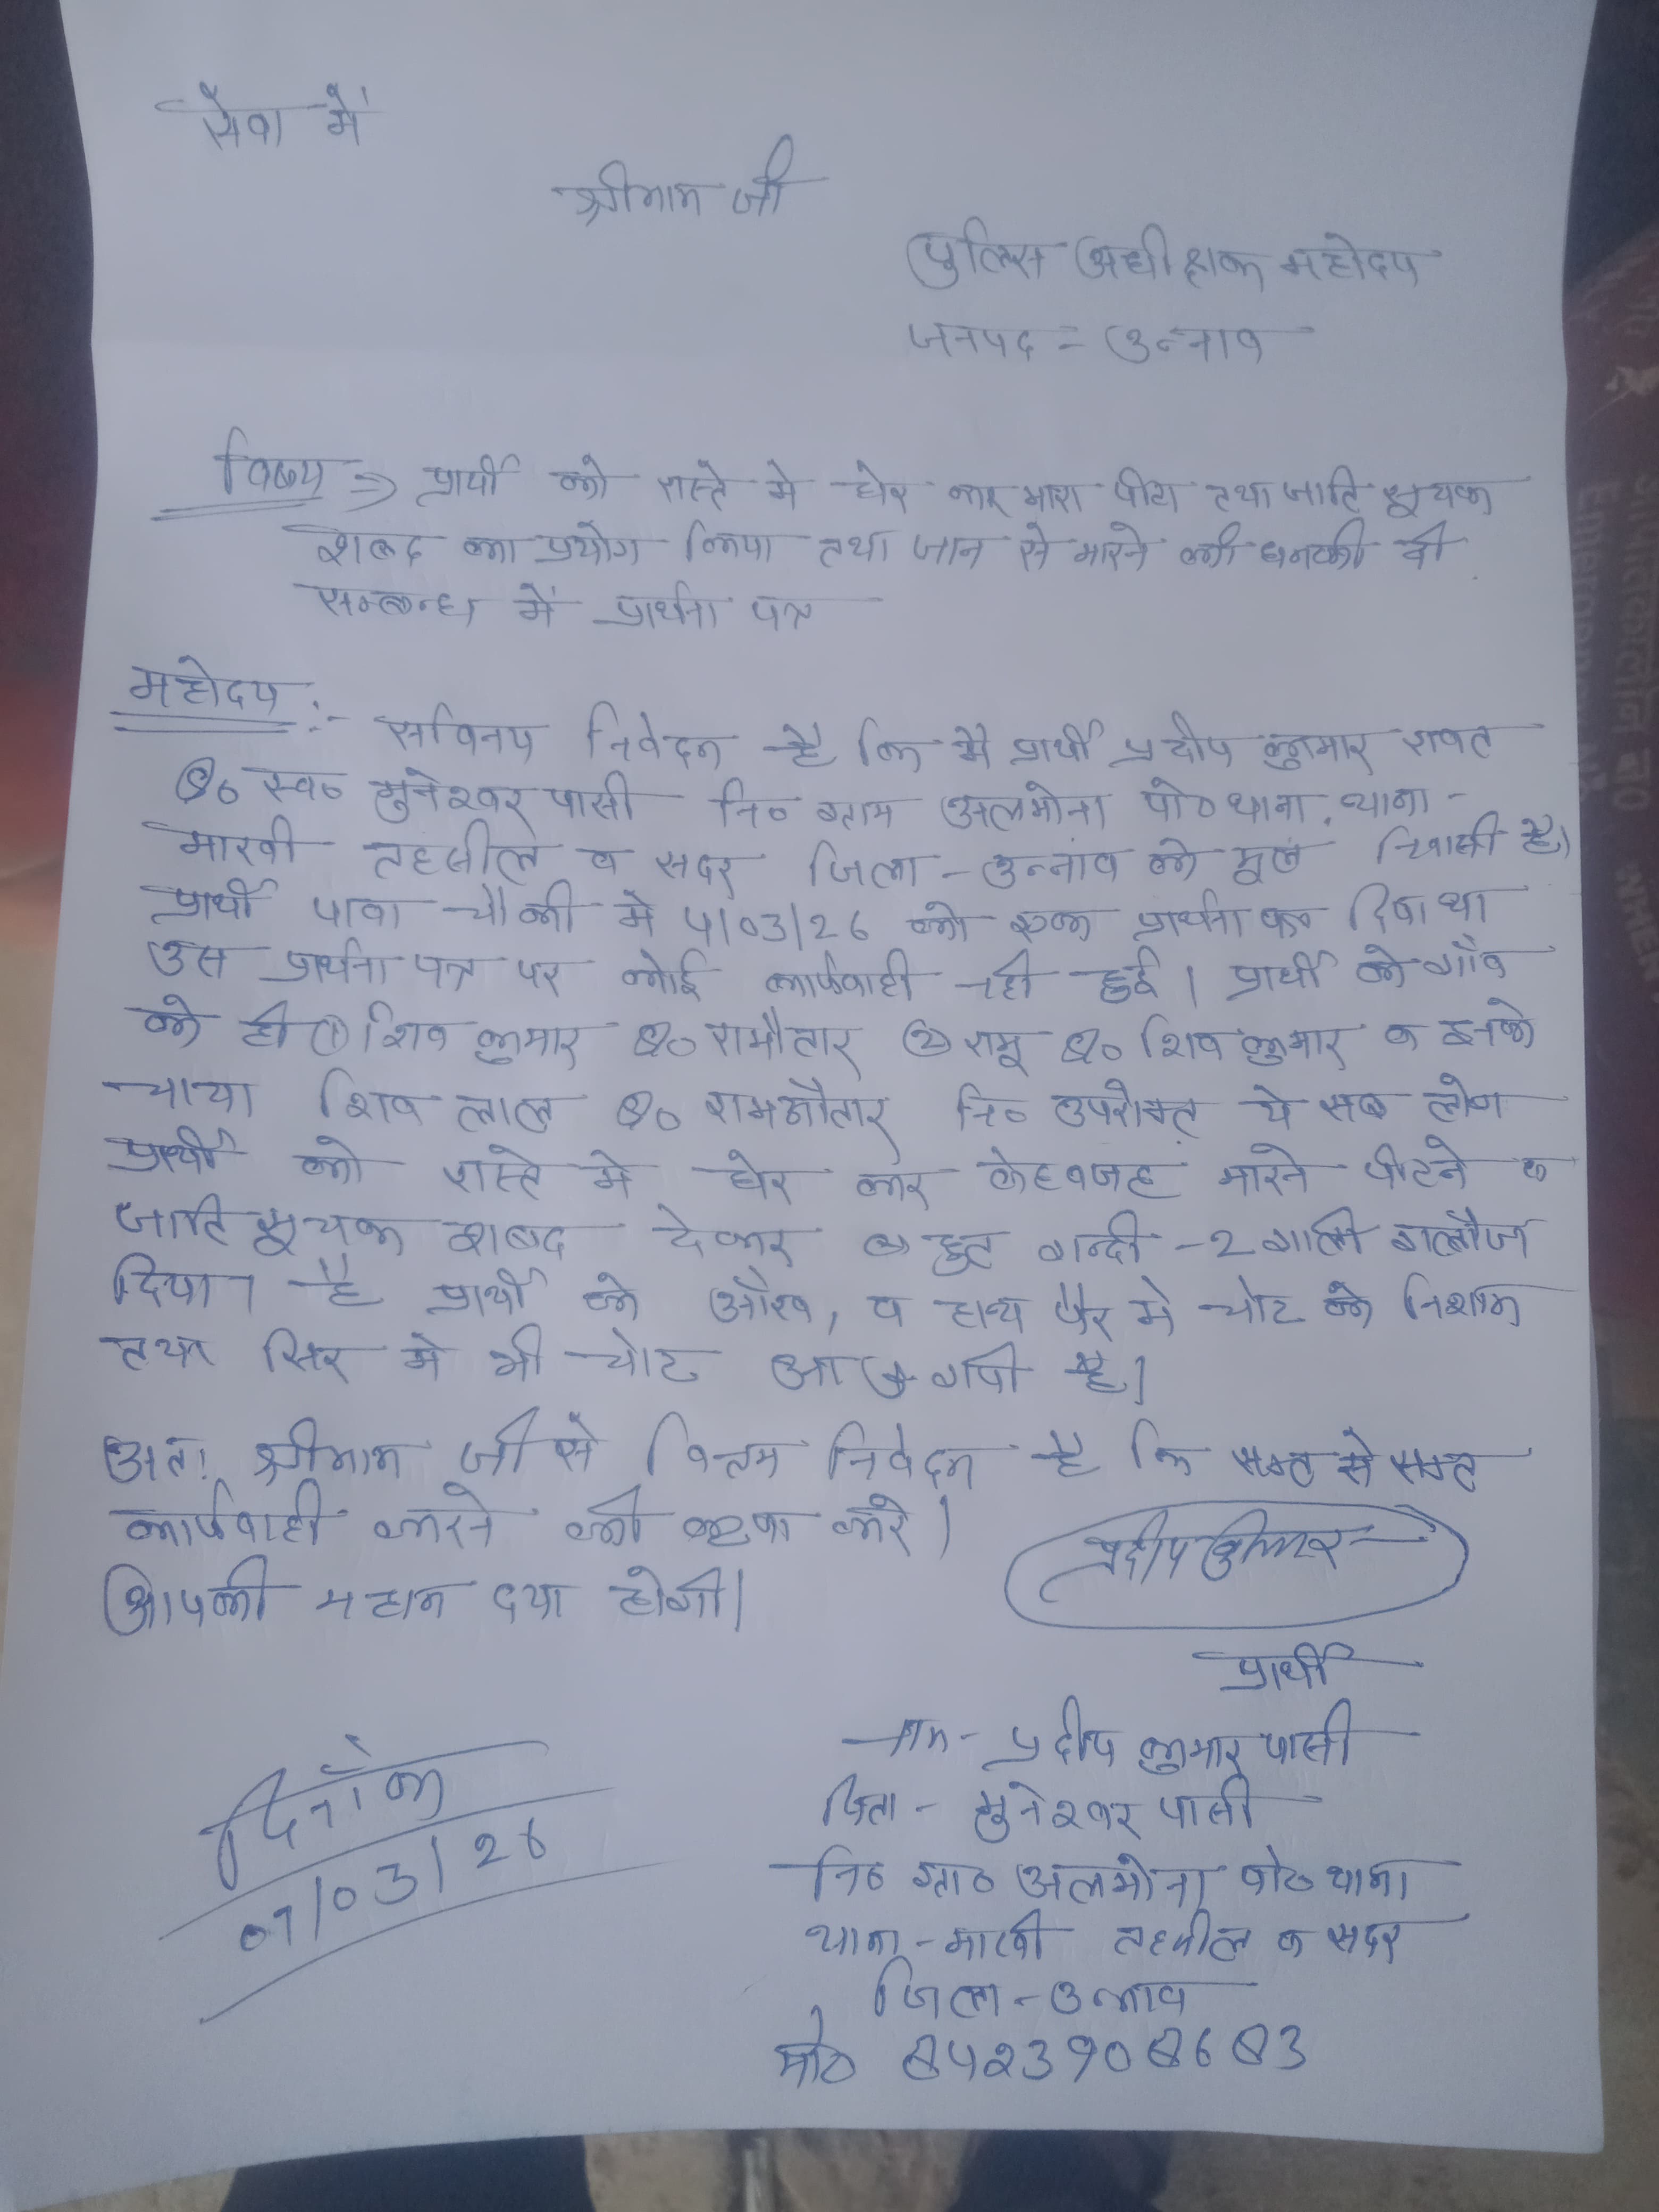 सेवा में
श्रीमान जी
पुलिस अधीक्षक महोदय
जनपद = उन्नाव
विषय => प्रार्थी को रास्ते मे घेर कर मारा पीटा तथा जाति सूचक
शब्द का प्रयोग किया तथा जान से मारने की धमकी दी
सम्बन्ध में प्रार्थना पत्र
महोदय :- सविनय निवेदन है कि मै प्रार्थी प्रदीप कुमार रावत
S/o स्व० मुनेश्वर पासी नि० ग्राम अलमोना पो० थाना, थाना-
माखी तहसील व सदर जिला - उन्नाव को मूल निवासी है।
प्रार्थी पावा चौकी मे 4/03/26 को एक प्रार्थना पत्र दिया था
उस प्रार्थना पत्र पर कोई कार्यवाही नही हुई। प्रार्थी के गाँव
के ही ① शिव कुमार S/o रामौतार ② रामू S/o शिव कुमार व इनके
चाचा शिव लाल S/o रामऔतार नि० उपरोक्त ये सब लोग
प्रार्थी को रास्ते मे घेर कर बेहवजह मारने पीटने व
जाति सूचक शब्द देकर बहुत गन्दी -2 गाली गलौज
दिया है प्रार्थी के आँख, व हाथ पैर मे चोट के निशान
तथा सिर मे भी चोट आ गयी है।
अतः श्रीमान जी से विनम निवेदन है कि सख्त से सख्त
कार्यवाही करने की कृपा करे।
आपकी महान दया होगी।
प्रदीप कुमार
प्रार्थी
नाम - प्रदीप कुमार पासी
पिता - मुनेश्वर पासी
नि० ग्रा० अलमोना पो० थाना
थाना - माखी तहसील व सदर
जिला - उन्नाव
मो० 8423908683
दिनाँक
07/03/26